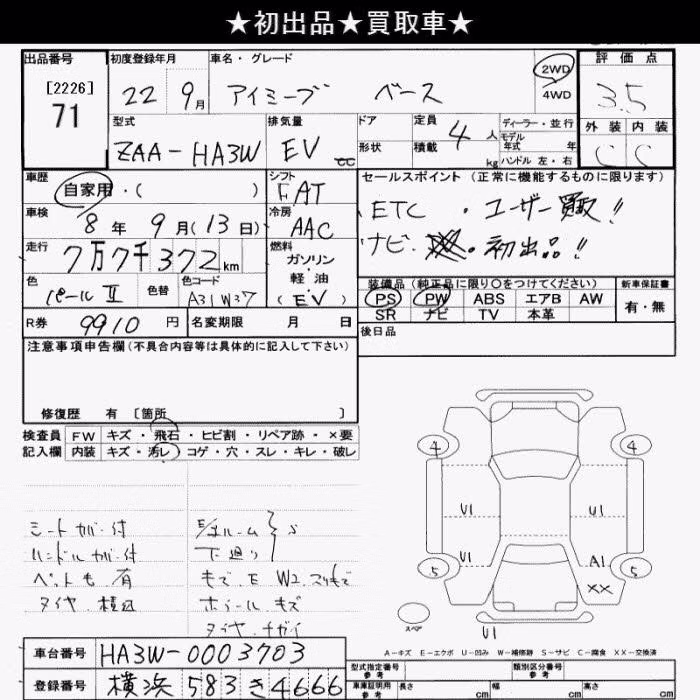 ★初出品★買取車★
出品番号
[2226]
71
初度登録年月
22年 9月
車名・グレード
アイミーブ ベース
2WD
4WD
評価点
3.5
型式
ZAA-HA3W
排気量
EV cc
ドア
形状
定員 4人
積載 kg
ディーラー・並行
モデル
年式 年
ハンドル 左・右
外装 内装
C C
車歴
自家用・( )
シフト
FAT
セールスポイント (正常に機能するものに限ります)
ETC ・ユーザー買取!!
ナビ ・初出品!!
車検
8年 9月(13日)
冷房
AAC
走行
7万7千372km
燃料
ガソリン
軽・油
(EV)
色
パールⅡ
色替
色コード
A31W37
装備品 (純正品に限り○をつけてください)
新車保証書
PS PW ABS エアB AW
SR ナビ TV 本革
有・無
R券 9910円
名変期限 月 日
後日品
注意事項申告欄(不具合内容等は具体的に記入して下さい)
修復歴 有 [箇所 ]
検査員
記入欄
FW キズ・飛石・ヒビ割・リペア跡・×要
内装 キズ・汚レ・コゲ・穴・スレ・キレ・破レ
シートカバー付
ハンドルカバー付
ペットも 有
タイヤ 積込
E/gルーム
下廻り
S
キズ E W2
ホイール キズ
タイヤ チガイ
4 4
U1 U1
U1 A1
XX
5 5
スペア
U1
A-キズ E-エクボ U-凹み W-補修跡 S-サビ C-腐食 XX-交換済
車台番号 HA3W-0003703
登録番号 横浜 583 き 4666
型式指定番号
参考
類別区分番号
参考
車庫証明用
参考
長さ cm 幅 cm 高さ cm